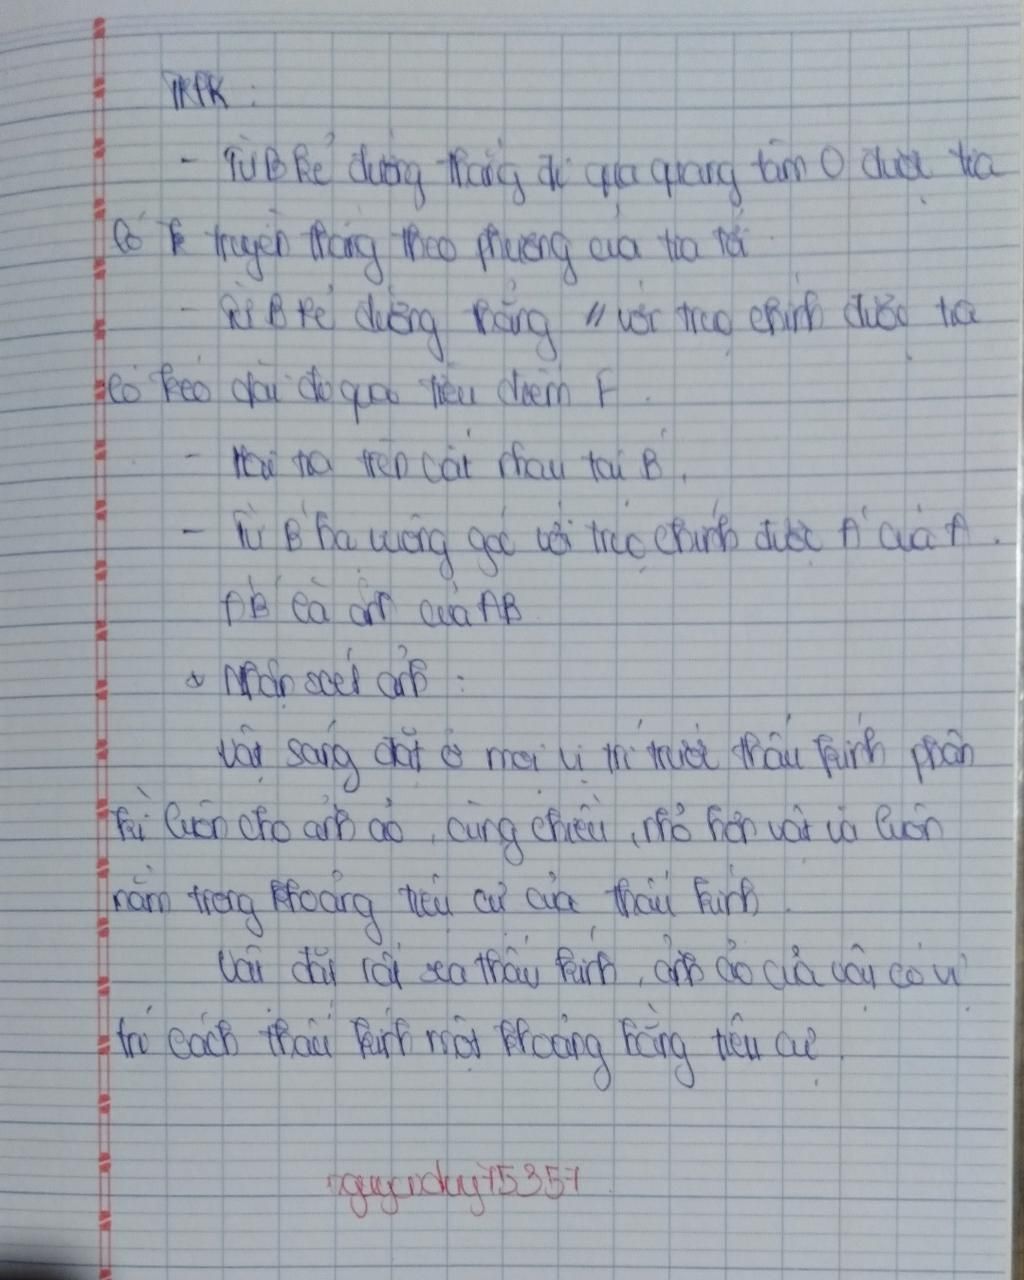 TKPK :
- Từ B kẻ đường thẳng đi qua quang tâm O được tia
ló truyền thẳng theo phương của tia tới
- Từ B kẻ đường thẳng // với trục chính được tia
ló kéo dài đi qua tiêu điểm F.
- Hai tia trên cắt nhau tại B'.
- Từ B' hạ vuông góc với trục chính được A' của A.
A'B' là ảnh của AB
* Nhận xét ảnh :
Vật sáng đặt ở mọi vị trí trước thấu kính phân
kì luôn cho ảnh ảo, cùng chiều, nhỏ hơn vật và luôn
nằm trong khoảng tiêu cự của thấu kính.
Vật đặt rất xa thấu kính, ảnh ảo của vật có vị
trí cách thấu kính một khoảng bằng tiêu cự.
nguyncky75357